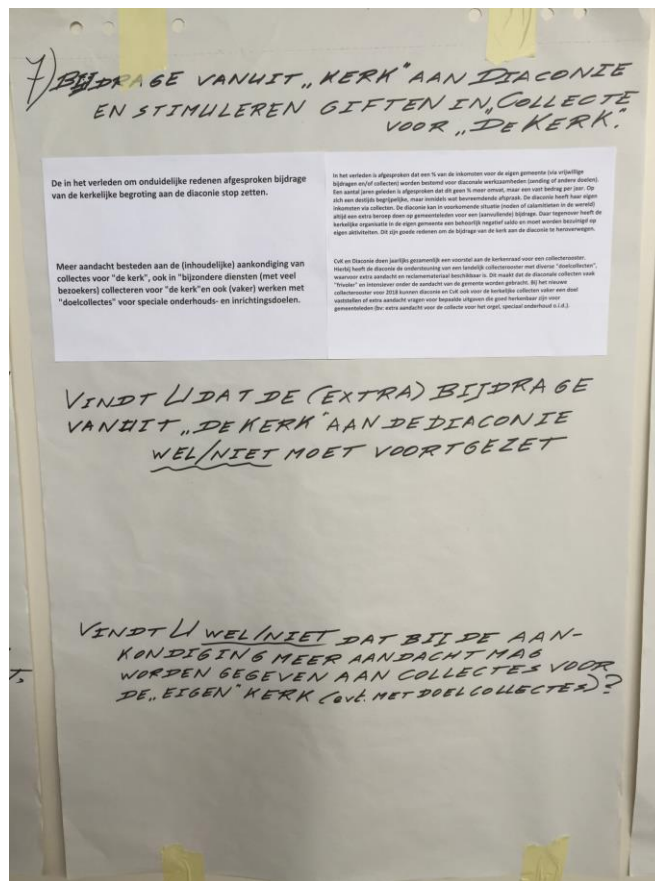 7) BIJDRAGE VANUIT „KERK" AAN DIACONIE
EN STIMULEREN GIFTEN IN „COLLECTE
VOOR „DE KERK".
De in het verleden om onduidelijke redenen afgesproken bijdrage
van de kerkelijke begroting aan de diaconie stop zetten.
Meer aandacht besteden aan de (inhoudelijke) aankondiging van
collectes voor "de kerk", ook in "bijzondere diensten (met veel
bezoekers) collecteren voor "de kerk"en ook (vaker) werken met
"doelcollectes" voor speciale onderhouds- en inrichtingsdoelen.
In het verleden is afgesproken dat een % van de inkomsten voor de eigen gemeente (via vrijwillige
bijdragen en/of collecten) worden bestemd voor diaconale werkzaamheden (zending of andere doelen).
Een aantal jaren geleden is afgesproken dat dit geen % meer omvat, maar een vast bedrag per jaar. Op
zich een destijds begrijpelijke, maar inmiddels wat bevreemdende afspraak. De diaconie heeft haar eigen
inkomsten via collecten. De diaconie kan in voorkomende situatie (noden of calamiteiten in de wereld)
altijd een extra beroep doen op gemeenteleden voor een (aanvullende) bijdrage. Daar tegenover heeft de
kerkelijke organisatie in de eigen gemeente een behoorlijk negatief saldo en moet worden bezuinigd op
eigen aktiviteiten. Dit zijn goede redenen om de bijdrage van de kerk aan de diaconie te heroverwegen.
CvK en Diaconie doen jaarlijks gezamenlijk een voorstel aan de kerkenraad voor een collecterooster.
Hierbij heeft de diaconie de ondersteuning van een landelijk collecterooster met diverse "doelcollecten",
waarvoor extra aandacht en reclamemateriaal beschikbaar is. Dit maakt dat de diaconale collecten vaak
"frivoler" en intensiever onder de aandacht van de gemeente worden gebracht. Bij het nieuwe
collecterooster voor 2018 kunnen diaconie en CvK ook voor de kerkelijke collecten vaker een doel
vaststellen of extra aandacht vragen voor bepaalde uitgaven die goed herkenbaar zijn voor
gemeenteleden (bv: extra aandacht voor de collecte voor het orgel, speciaal onderhoud o.i.d.).
VINDT U DAT DE (EXTRA) BIJDRAGE
VANUIT „DE KERK" AAN DE DIACONIE
WEL/NIET MOET VOORTGEZET
VINDT U WEL/NIET DAT BIJ DE AAN-
KONDIGING MEER AANDACHT MAG
WORDEN GEGEVEN AAN COLLECTES VOOR
DE „EIGEN" KERK (evt. MET DOELCOLLECTES)?